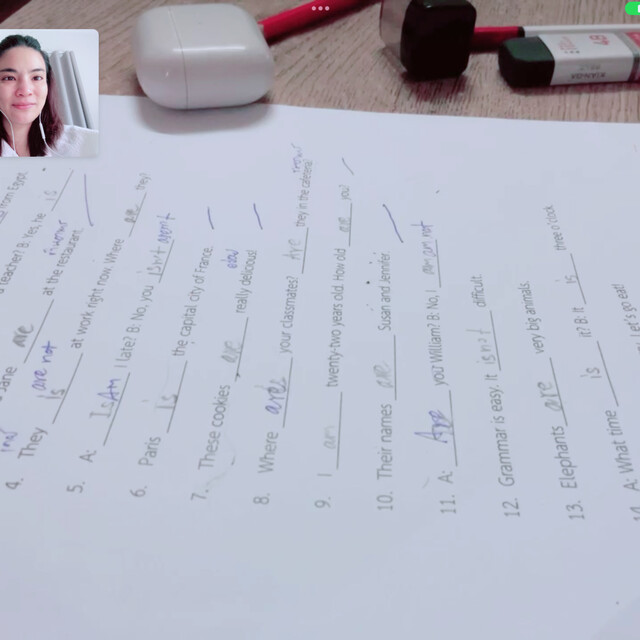 from Egypt.
teacher? B: Yes, he is
Jane are at the restaurant.
4. They are not is at work right now. Where are they?
5. A: Am I late? B: No, you aren't
6. Paris is the capital city of France.
7. These cookies are really delicious!
8. Where are your classmates? Are they in the cafeteria?
9. I am twenty-two years old. How old are you?
10. Their names are Susan and Jennifer.
11. A: Are you William? B: No, I am not
12. Grammar is easy. It isn't difficult
13. Elephants are very big animals.
14. A: What time is it? B: It is three o'clock
Let's go eat!